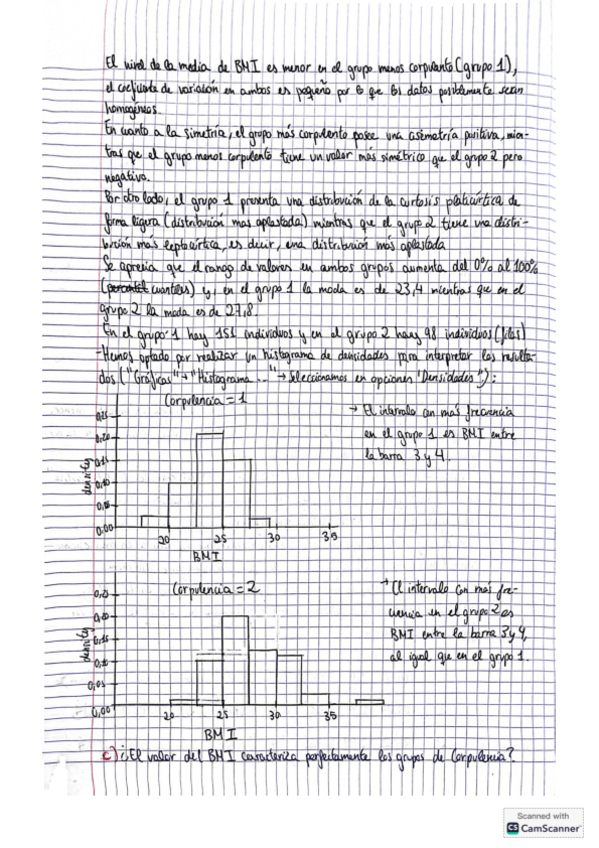 El nivel de la media de BMI es menor en el grupo menos corpulento (grupo 1),
el coeficiente de variación en ambos es pequeño por lo que los datos posiblemente sean
homogéneos.
En cuanto a la simetría, el grupo más corpulento posee una asimetría positiva, mien-
tras que el grupo menos corpulento tiene un valor más simétrico que el grupo 2 pero
negativo.
Por otro lado, el grupo 1 presenta una distribución de la curtosis platicúrtica de
forma ligera (distribución mas aplastada) mientras que el grupo 2 tiene una distri-
bución más leptocúrtica, es decir, una distribución más aplastada
Se aprecia que el rango de valores en ambos grupos aumenta del 0% al 100%
(cuantiles) y, en el grupo 1 la moda es de 23,4 mientras que en el
grupo 2 la moda es de 27,8.
En el grupo 1 hay 151 individuos y en el grupo 2 hay 98 individuos (filas)
-Hemos optado por realizar un histograma de densidades para interpretar los resulta-
dos ("Gráficas" → "Histograma..." → Seleccionamos en opciones "Densidades"):
Corpulencia = 1
→ El intervalo con más frecuencia
en el grupo 1 es BMI entre
la barra 3 y 4.
density
0,25
0,20
0,15
0,10
0,05
0,00
20 25 30 35
BMI
Corpulencia = 2
→ El intervalo con más fre-
cuencia en el grupo 2 es
BMI entre la barra 3 y 4,
al igual que en el grupo 1.
density
0,25
0,20
0,15
0,10
0,05
0,00
20 25 30 35
BMI
c) ¿El valor del BMI caracteriza perfectamente los grupos de Corpulencia?
Scanned with
CS CamScanner